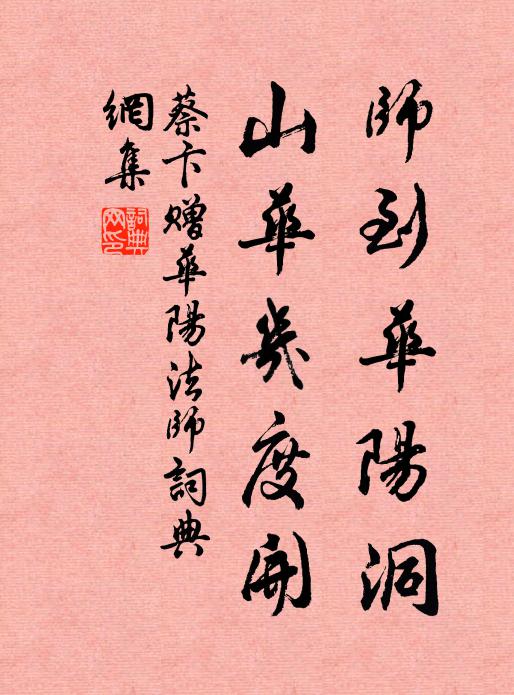 師到華陽洞
山華幾度開
蔡卞贈華陽法師詞典
網集
詞典網印